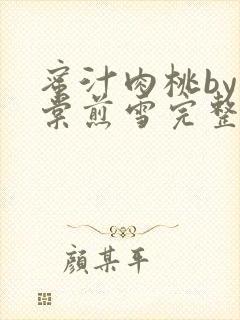 蜜汁肉桃by
棠煎雪完整
顔某平